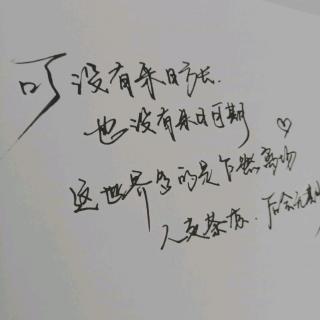 可没有来日方长.
也没有来日可期
这世界多的是乍然离场
人走茶凉.后会无期